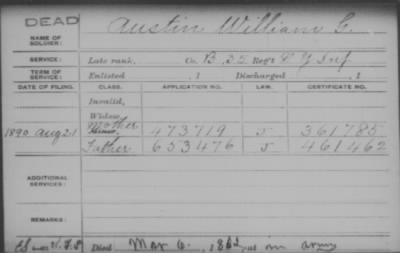 DEAD
NAME OF SOLDIER: Austin William G.
SERVICE: Late rank, Co. B, 35 Reg't N Y Inf
TERM OF SERVICE: Enlisted , 1 Discharged , 1
DATE OF FILING. CLASS. APPLICATION NO. LAW. CERTIFICATE NO.
Invalid,
Widow,
1890 Aug 21 Mother Minor, 473719 5 361785
Father 653476 5 461462
ADDITIONAL SERVICES:
REMARKS:
Died Mar 6, 1862 in army